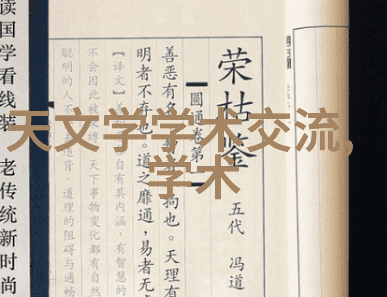 天文学学术交流,
学术
荣枯鉴
五代 冯道
圆通卷第
善恶有 拘也。天理有
明者不弃也。道之靡通,易者无
【译文】 自有其内涵,有智慧的
不会因此被 缚。天下事物变化都有自然
聪明的人不 道理的阻碍与通畅
读国学看线装 老传统新时尚